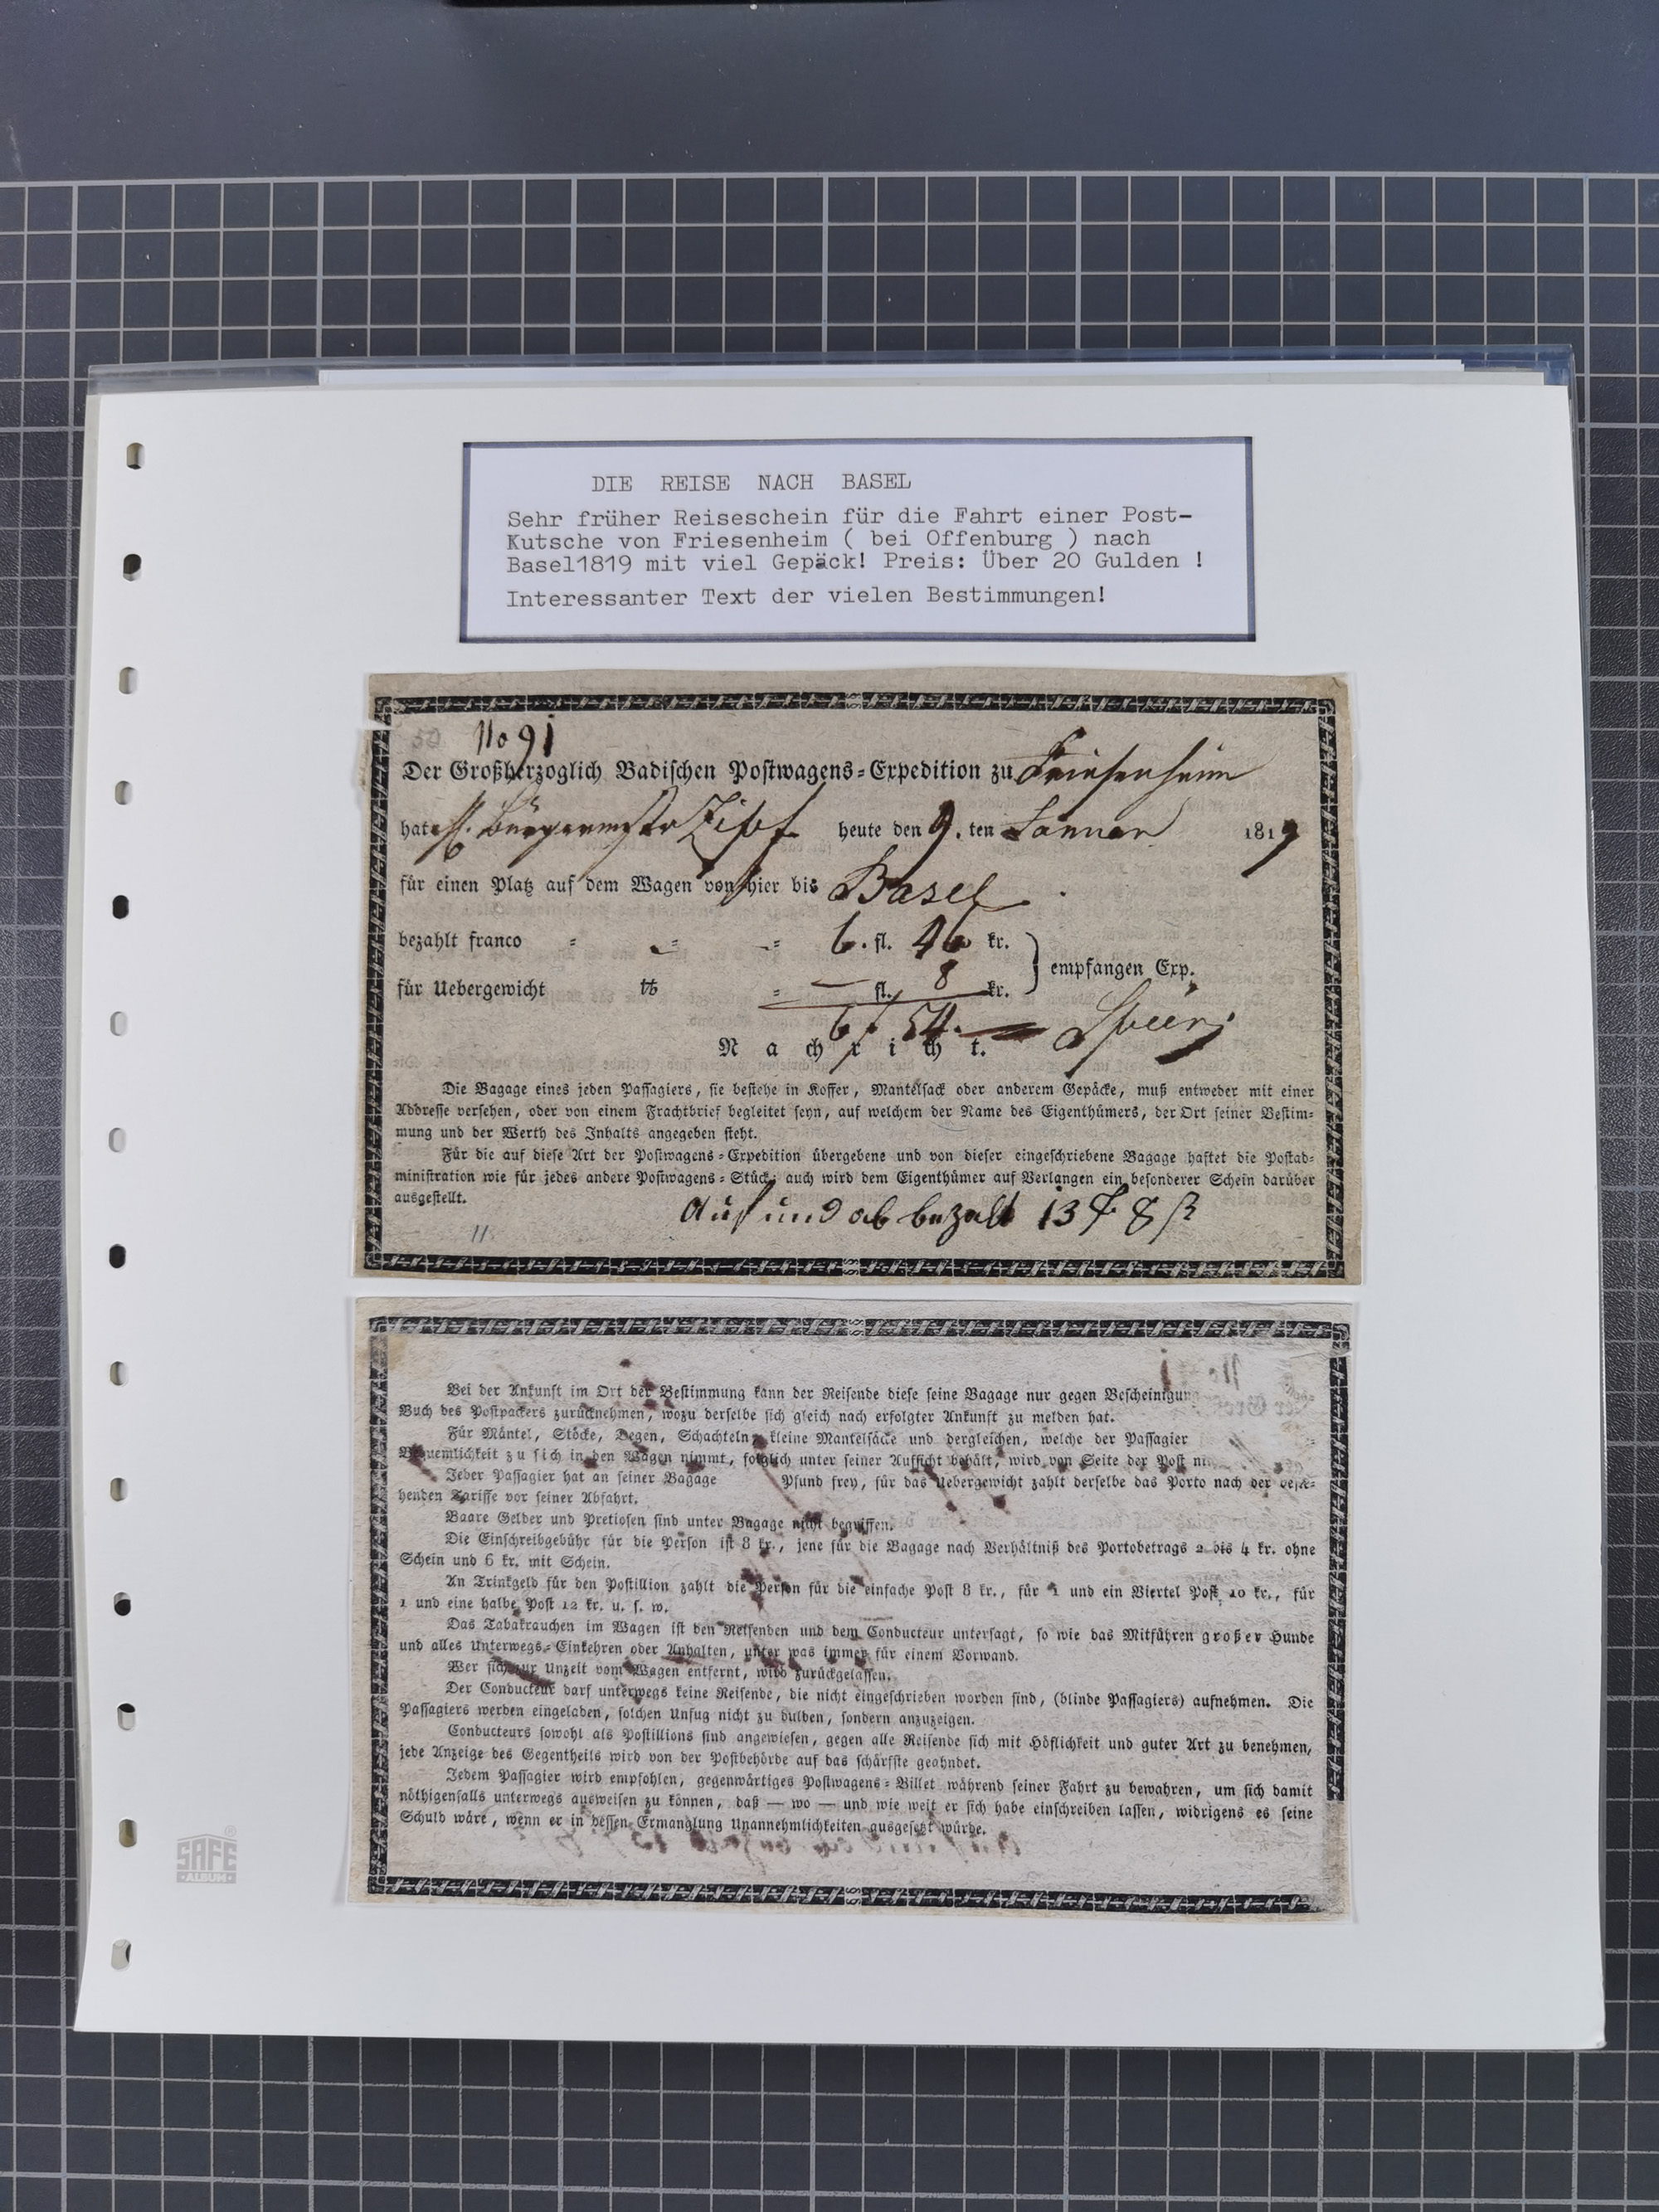 DIE REISE NACH BASEL
Sehr früher Reiseschein für die Fahrt einer Post-
Kutsche von Friesenheim ( bei Offenburg ) nach
Basel1819 mit viel Gepäck! Preis: Über 20 Gulden !
Interessanter Text der vielen Bestimmungen!
50 No 91
Der Großherzoglich Badischen Postwagens-Expedition zu Friesenheim
hat H. Bürgermstr Zipf heute den 9. ten Januar 1819
für einen Platz auf dem Wagen von hier bis Basel
bezahlt franco = = = 6. fl. 46 kr.
für Uebergewicht ℔ = — fl. 8 kr. } empfangen Exp.
6 f 54.
Nachricht.
Die Bagage eines jeden Passagiers, sie bestehe in Koffer, Mantelsack oder anderem Gepäcke, muß entweder mit einer
Addresse versehen, oder von einem Frachtbrief begleitet seyn, auf welchem der Name des Eigenthümers, der Ort seiner Bestim-
mung und der Werth des Inhalts angegeben steht.
Für die auf diese Art der Postwagens-Expedition übergebene und von dieser eingeschriebene Bagage haftet die Postad-
ministration wie für jedes andere Postwagens-Stück; auch wird dem Eigenthümer auf Verlangen ein besonderer Schein darüber
ausgestellt.
Auf und ab bezalt 13 f 8 ß
Bei der Ankunft im Ort der Bestimmung kann der Reisende diese seine Bagage nur gegen Bescheinigung
Buch des Postpackers zurücknehmen, wozu derselbe sich gleich nach erfolgter Ankunft zu melden hat.
Für Mäntel, Stöcke, Degen, Schachteln, kleine Mantelsäcke und dergleichen, welche der Passagier
Bequemlichkeit zu sich in den Wagen nimmt, folglich unter seiner Aufsicht behält, wird von Seite der Post
Jeder Passagier hat an seiner Bagage Pfund frey, für das Uebergewicht zahlt derselbe das Porto nach der beste-
henden Tariffe vor seiner Abfahrt.
Baare Gelder und Pretiosen sind unter Bagage nicht begriffen.
Die Einschreibgebühr für die Person ist 8 kr., jene für die Bagage nach Verhältniß des Portobetrags 2 bis 4 kr. ohne
Schein und 6 kr. mit Schein.
An Trinkgeld für den Postillion zahlt die Person für die einfache Post 8 kr., für 1 und ein Viertel Post, 10 kr., für
1 und eine halbe Post 12 kr. u. s. w.
Das Tabakrauchen im Wagen ist den Reisenden und dem Conducteur untersagt, so wie das Mitführen großer Hunde
und alles Unterwegs-Einkehren oder Anhalten, unter was immer für einem Vorwand.
Wer sich zur Unzeit vom Wagen entfernt, wird zurückgelassen.
Der Conducteur darf unterwegs keine Reisende, die nicht eingeschrieben worden sind, (blinde Passagiers) aufnehmen. Die
Passagiers werden eingeladen, solchen Unfug nicht zu dulden, sondern anzuzeigen.
Conducteurs sowohl als Postillions sind angewiesen, gegen alle Reisende sich mit Höflichkeit und guter Art zu benehmen,
jede Anzeige des Gegentheils wird von der Postbehörde auf das schärfste geahndet.
Jedem Passagier wird empfohlen, gegenwärtiges Postwagens-Billet während seiner Fahrt zu bewahren, um sich damit
nöthigenfalls unterwegs ausweisen zu können, daß — wo — und wie weit er sich habe einschreiben lassen, widrigens es seine
Schuld wäre, wenn er in dessen Ermanglung Unannehmlichkeiten ausgesetzt würde.
SAFE
ALBUM